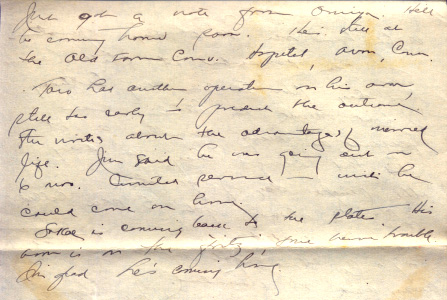 Just got a note from Omiya. He'll
be coming home soon. He's still at
the Old Farm Conv. Hospital, Avon, Conn.
Taro has another operation on his arm,
still too early to predict the outcome
He writes about the advantages of married
life. Jim said he was going out in
6 mos. limited service — until he
could come on home
is coming back to the states. His
arm is on the fritz, some nerve trouble
I'm glad he's coming home